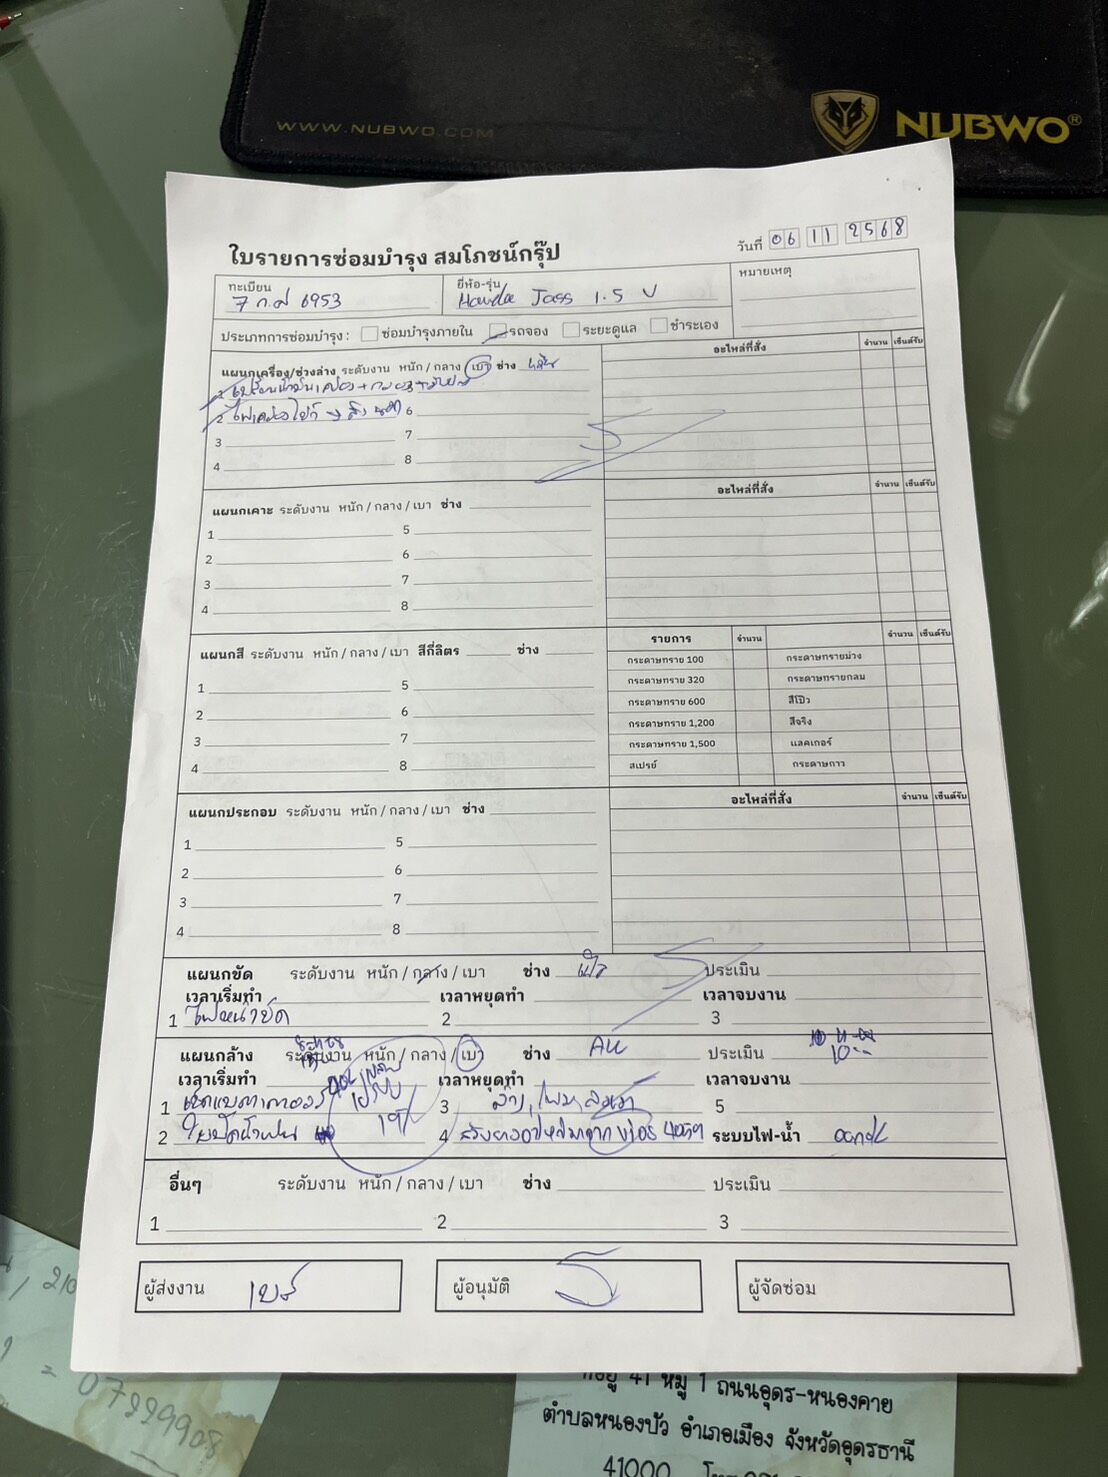 WWW.NUBWO.COM
NUBWO®
ใบรายการซ่อมบำรุง สมโภชน์กรุ๊ป
วันที่ 06 11 2568
ทะเบียน
7 6953
ยี่ห้อ-รุ่น
1.5 V
หมายเหตุ
ประเภทการซ่อมบำรุง : ซ่อมบำรุงภายใน รถจอง ระยะดูแล ชำระเอง
แผนกเครื่อง/ช่วงล่าง ระดับงาน หนัก / กลาง / เบา ช่าง
อะไหล่ที่สั่ง จำนวน เซ็นต์รับ
2 6
3 7
4 8
แผนกเคาะ ระดับงาน หนัก / กลาง / เบา ช่าง
อะไหล่ที่สั่ง จำนวน เซ็นต์รับ
1 5
2 6
3 7
4 8
แผนกสี ระดับงาน หนัก / กลาง / เบา สีกี่ลิตร ช่าง
รายการ จำนวน จำนวน เซ็นต์รับ
1 5
2 6
3 7
4 8
กระดาษทราย 100 กระดาษทรายม่วง
กระดาษทราย 320 กระดาษทรายกลม
กระดาษทราย 600 สีโป๊ว
กระดาษทราย 1,200 สีจริง
กระดาษทราย 1,500 แลคเกอร์
สเปรย์ กระดาษกาว
แผนกประกอบ ระดับงาน หนัก / กลาง / เบา ช่าง
อะไหล่ที่สั่ง จำนวน เซ็นต์รับ
1 5
2 6
3 7
4 8
แผนกขัด ระดับงาน หนัก / กลาง / เบา ช่าง ประเมิน
เวลาเริ่มทำ เวลาหยุดทำ เวลาจบงาน
1 ไฟหน้าขัด 2 3
แผนกล้าง ระดับงาน หนัก / กลาง / เบา ช่าง ประเมิน
เวลาเริ่มทำ เวลาหยุดทำ เวลาจบงาน
1 3 5
2 ใบปัดน้ำฝน 4 ระบบไฟ-น้ำ
อื่นๆ ระดับงาน หนัก / กลาง / เบา ช่าง ประเมิน
1 2 3
ผู้ส่งงาน
ผู้อนุมัติ
ผู้จัดซ่อม
41 หมู่ 1 ถนนอุดร-หนองคาย
ตำบลหนองบัว อำเภอเมือง จังหวัดอุดรธานี
41000